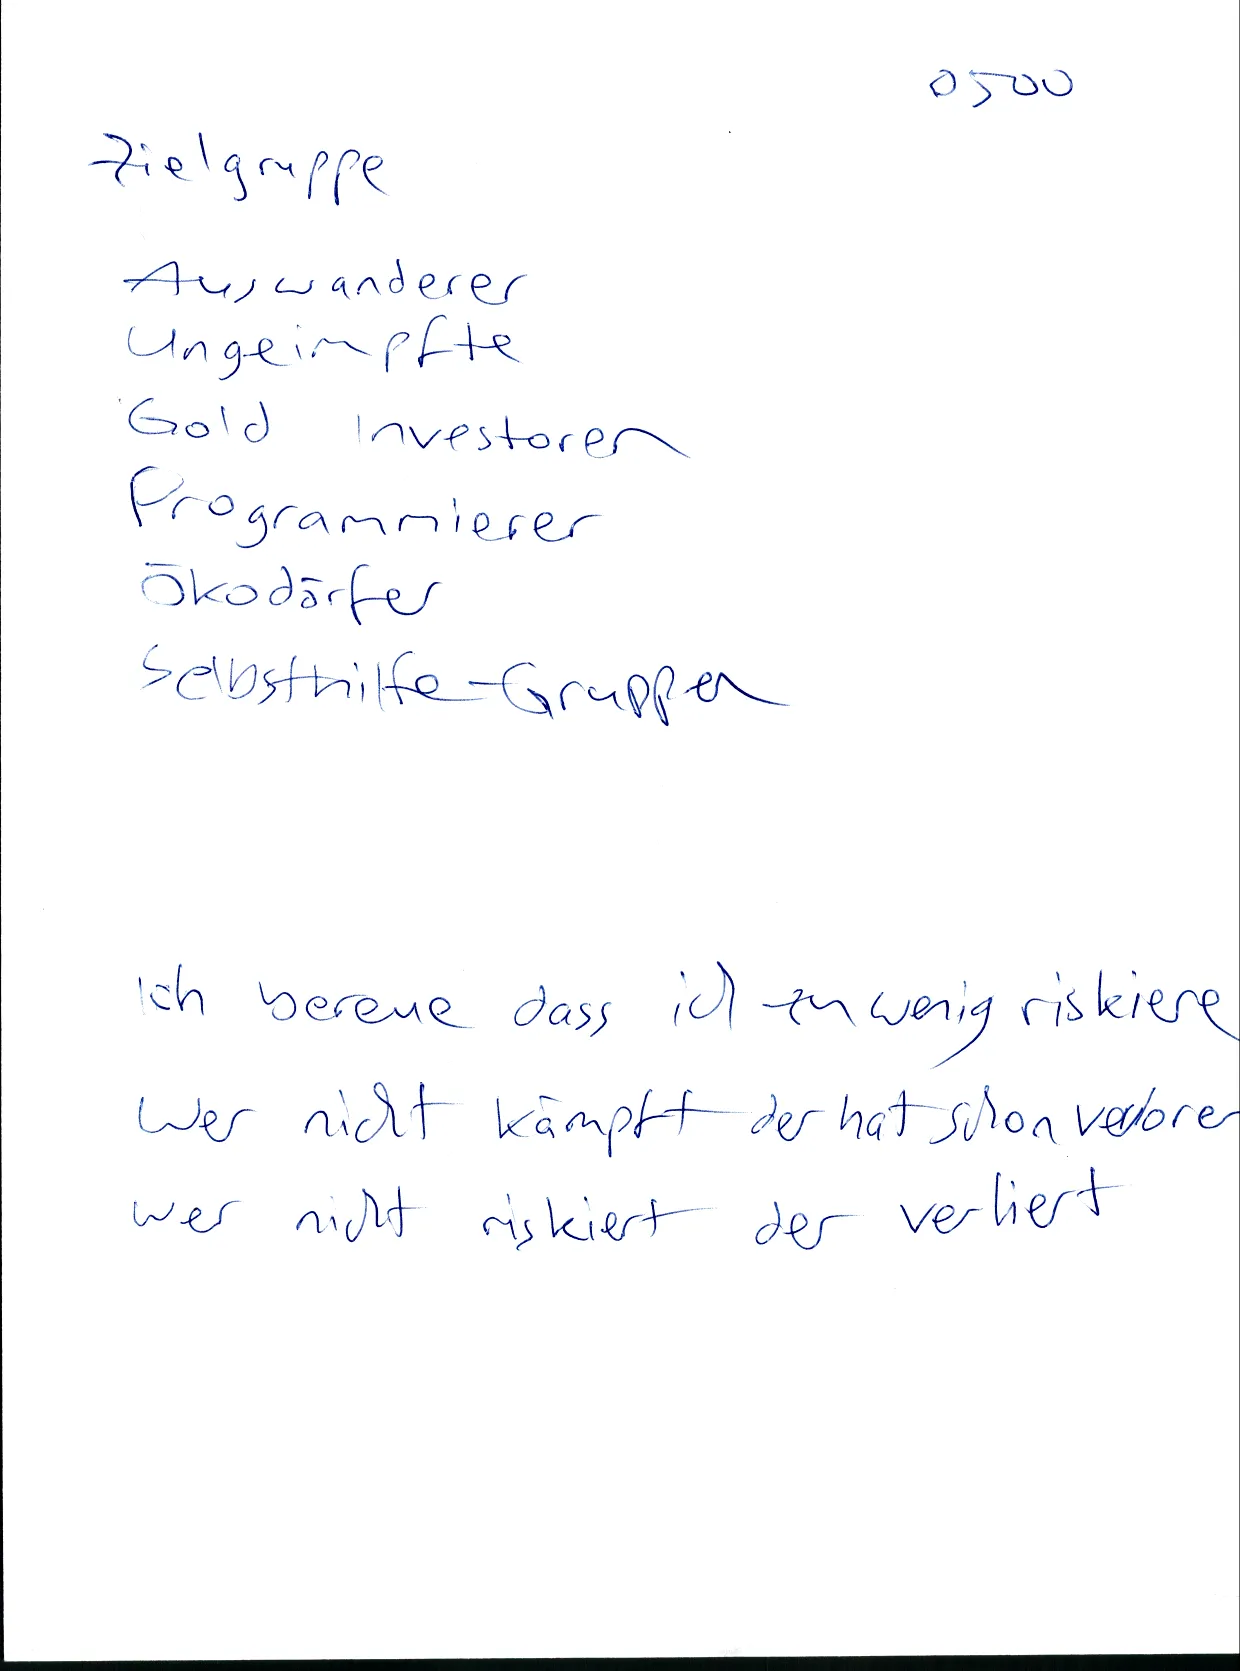 0500
Zielgruppe
Auswanderer
Ungeimpfte
Gold Investoren
Programmierer
Ökodörfer
Selbsthilfe-Gruppen
Ich bereue dass ich zu wenig riskiere
Wer nicht kämpft der hat schon verloren
wer nicht riskiert der verliert